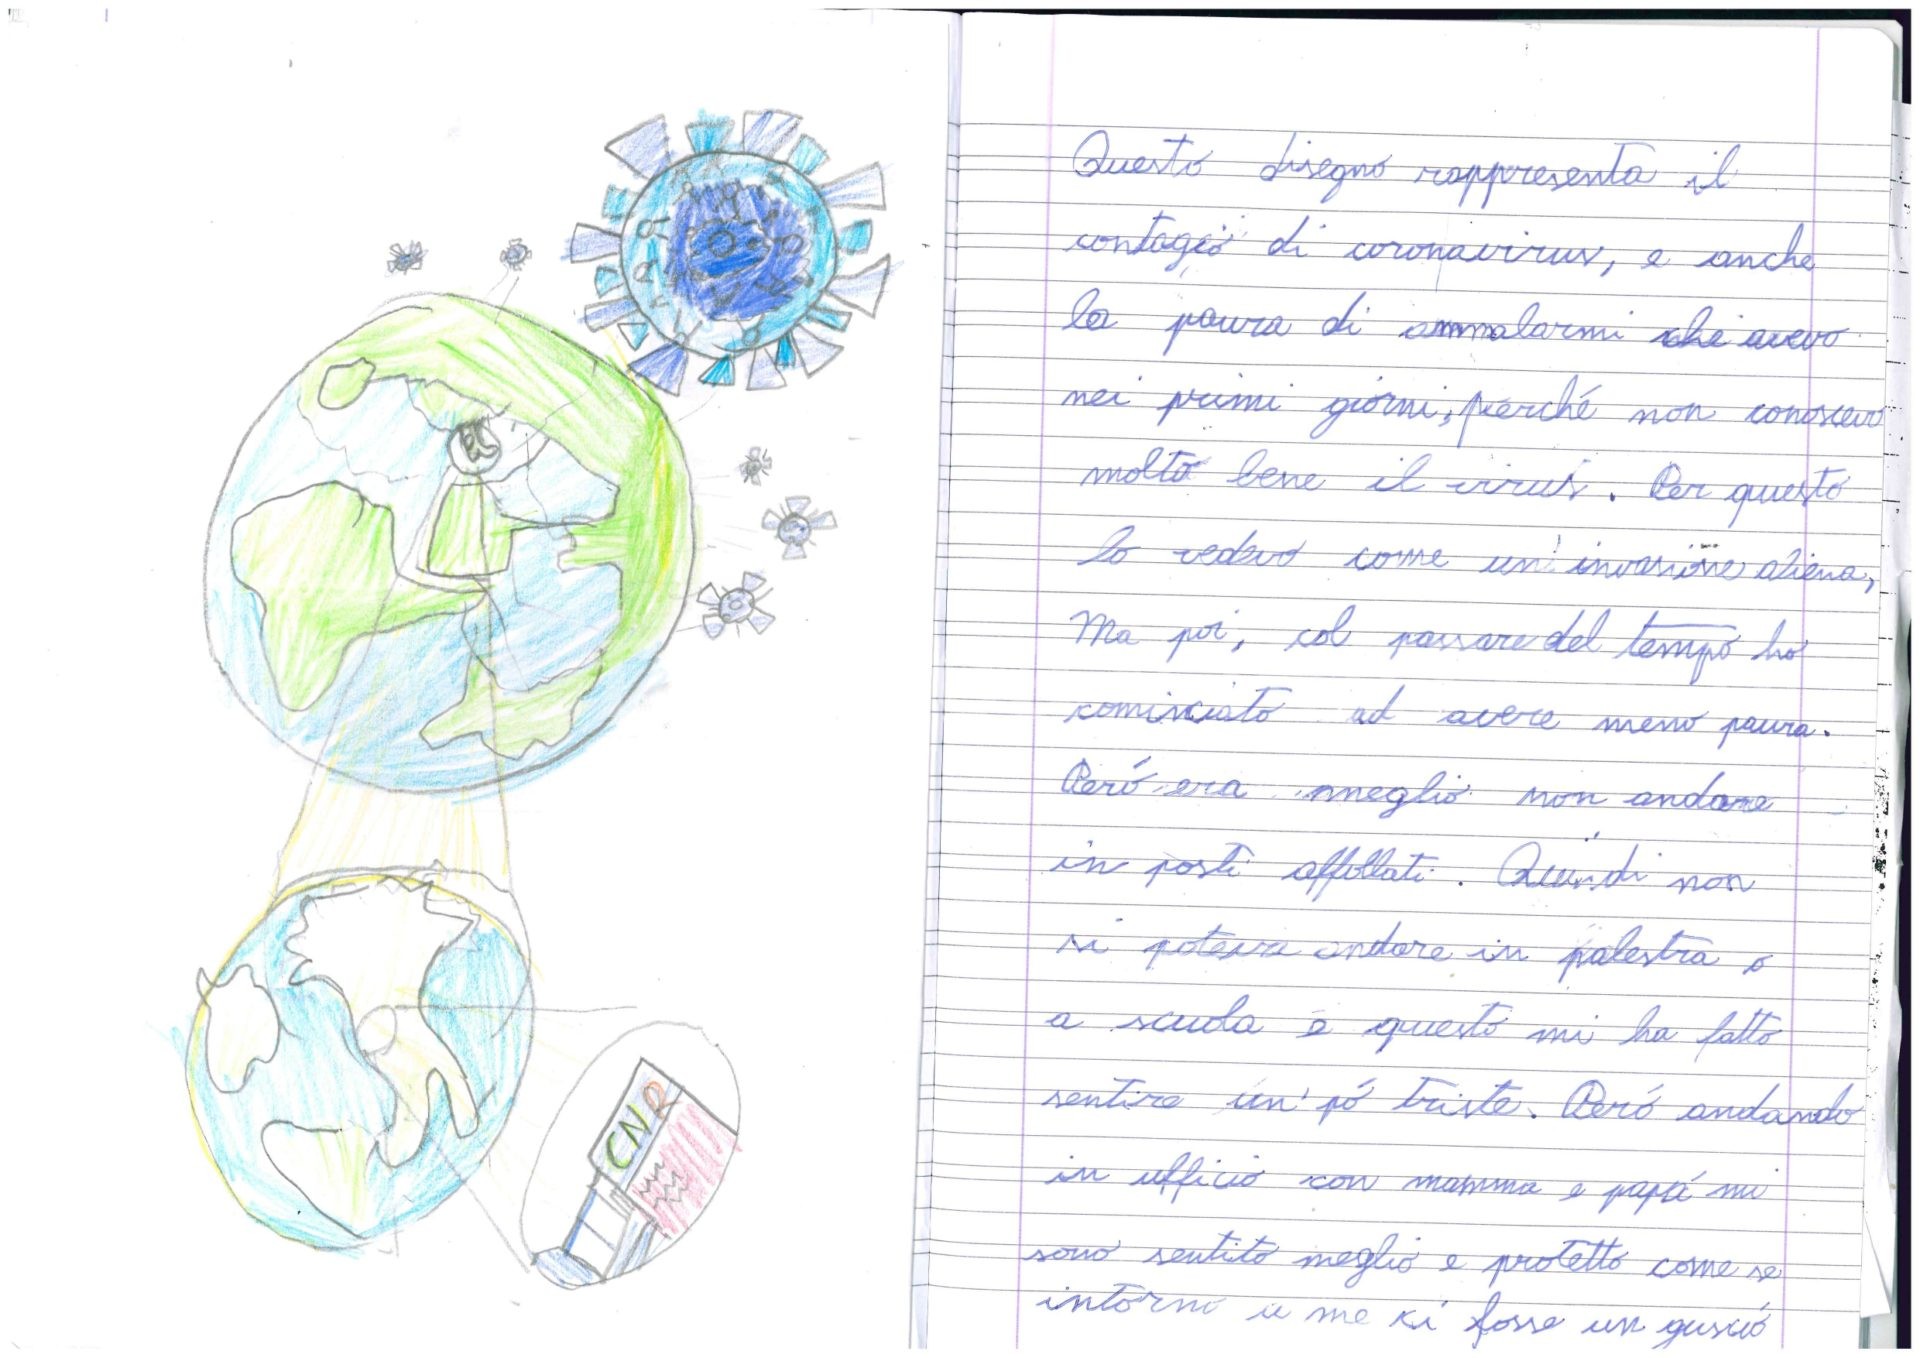 CNR
Questo disegno rappresenta il
contagio di coronavirus, e anche
la paura di ammalarmi che avevo
nei primi giorni, perché non conoscevo
molto bene il virus. Per questo
lo vedevo come un'invasione aliena,
Ma poi, col passare del tempo ho
cominciato ad avere meno paura.
Peró era meglio non andare
in posti affollati. Quindi non
si poteva andare in palestra o
a scuola e questo mi ha fatto
sentire un' pó triste. Peró andando
in ufficio con mamma e papá mi
sono sentito meglio e protetto come se
intorno a me ci fosse un guscio